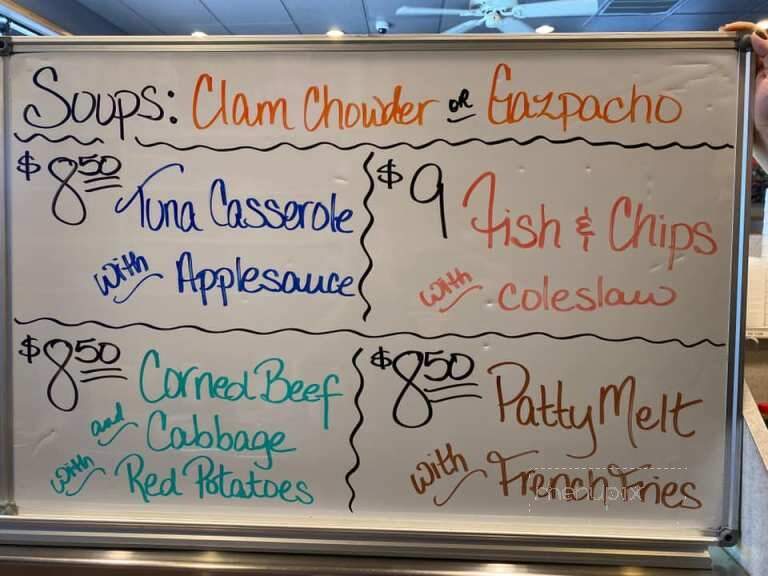 Soups: Clam Chowder or Gazpacho
$8.50 Tuna Casserole
with Applesauce
$9 Fish & Chips
with coleslaw
$8.50 Corned Beef
and Cabbage
with Red Potatoes
$8.50 Patty Melt
with French Fries
menupix